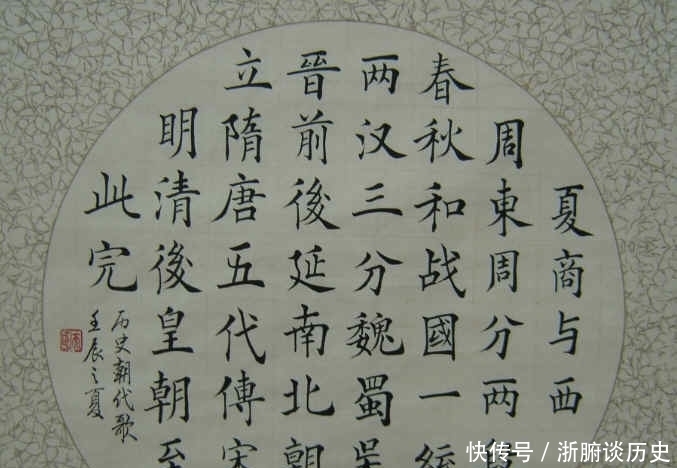 夏商与西
周東周分两
春秋和战國一統
两汉三分魏蜀吴
晉前後延南北朝
立隋唐五代傳宋
明清後皇朝至
此完
历史朝代歌
壬辰之夏
快传号 / 浙腑谈历史